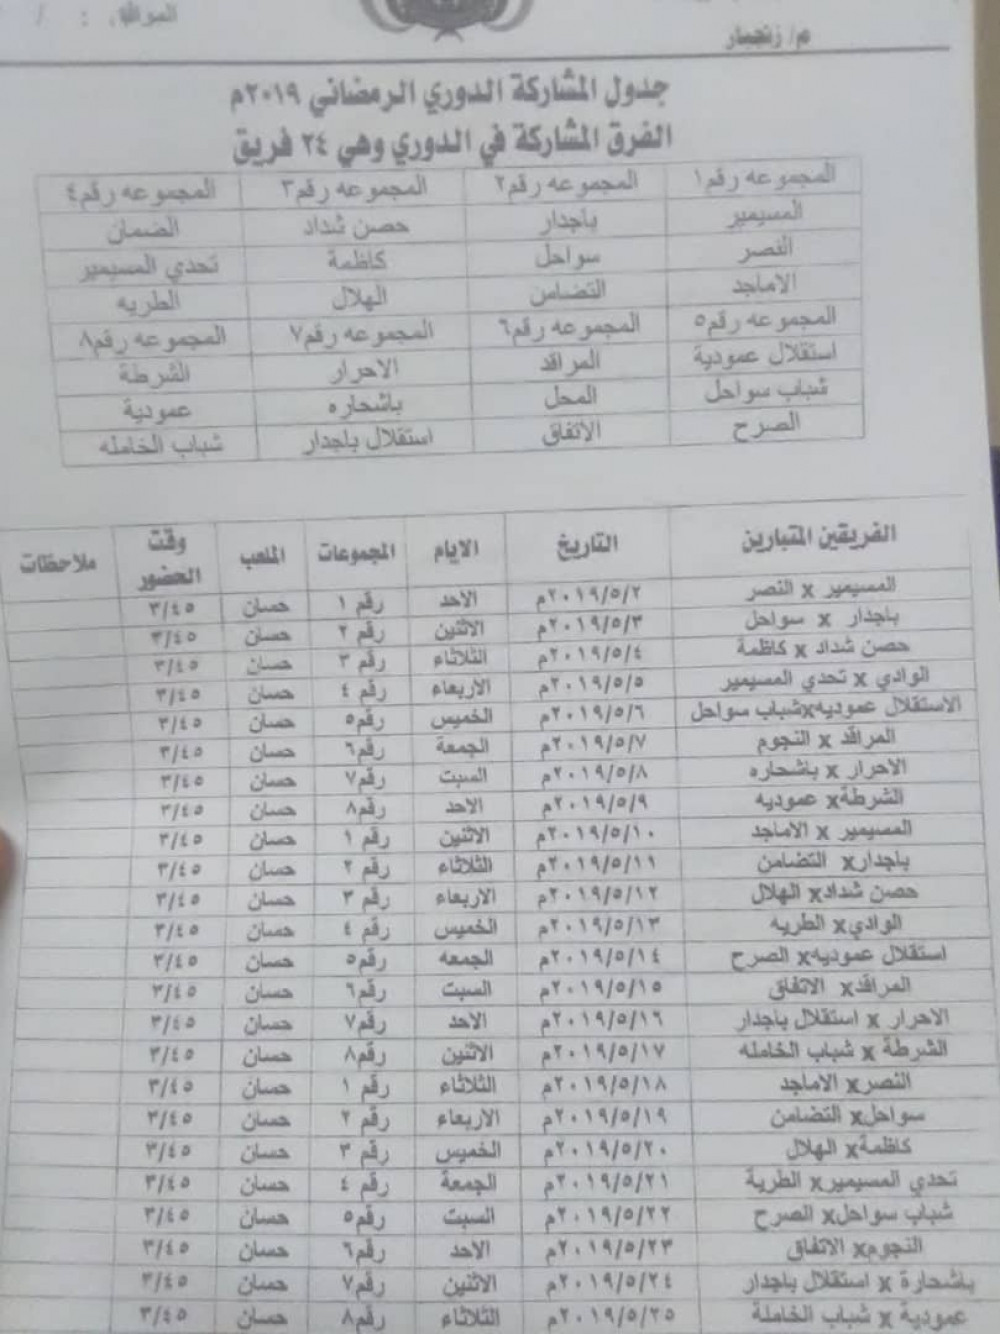 الموافق : /
م/ زنجبار
جدول المشاركة الدوري الرمضاني ٢٠١٩م
الفرق المشاركة في الدوري وهي ٢٤ فريق
المجموعه رقم١ المجموعه رقم٢ المجموعه رقم٣ المجموعه رقم٤
المسيمير باجدار حصن شداد الضمان
النصر سواحل كاظمة تحدي المسيمير
الاماجد التضامن الهلال الطريه
المجموعه رقم٥ المجموعه رقم٦ المجموعه رقم٧ المجموعه رقم٨
استقلال عمودية المراقد الاحرار الشرطة
شباب سواحل المحل باشحاره عمودية
الصرح الاتفاق استقلال باجدار شباب الخامله
الفريقين المتبارين التاريخ الايام المجموعات الملعب وقت الحضور ملاحظات
المسيمير x النصر ٢٠١٩/٥/٢م الاحد رقم ١ حسان ٣/٤٥
باجدار x سواحل ٢٠١٩/٥/٣م الاثنين رقم ٢ حسان ٣/٤٥
حصن شداد x كاظمة ٢٠١٩/٥/٤م الثلاثاء رقم ٣ حسان ٣/٤٥
الوادي x تحدي المسيمير ٢٠١٩/٥/٥م الاربعاء رقم ٤ حسان ٣/٤٥
الاستقلال عموديهxشباب سواحل ٢٠١٩/٥/٦م الخميس رقم٥ حسان ٣/٤٥
المراقد x النجوم ٢٠١٩/٥/٧م الجمعة رقم٦ حسان ٣/٤٥
الاحرار x باشحاره ٢٠١٩/٥/٨م السبت رقم٧ حسان ٣/٤٥
الشرطةx عموديه ٢٠١٩/٥/٩م الاحد رقم٨ حسان ٣/٤٥
المسيمير x الاماجد ٢٠١٩/٥/١٠م الاثنين رقم ١ حسان ٣/٤٥
باجدارx التضامن ٢٠١٩/٥/١١م الثلاثاء رقم ٢ حسان ٣/٤٥
حصن شدادx الهلال ٢٠١٩/٥/١٢م الاربعاء رقم ٣ حسان ٣/٤٥
الواديx الطريه ٢٠١٩/٥/١٣م الخميس رقم ٤ حسان ٣/٤٥
استقلال عموديهx الصرح ٢٠١٩/٥/١٤م الجمعه رقم٥ حسان ٣/٤٥
المراقدx الاتفاق ٢٠١٩/٥/١٥م السبت رقم٦ حسان ٣/٤٥
الاحرار x استقلال باجدار ٢٠١٩/٥/١٦م الاحد رقم٧ حسان ٣/٤٥
الشرطة x شباب الخامله ٢٠١٩/٥/١٧م الاثنين رقم٨ حسان ٣/٤٥
النصرx الاماجد ٢٠١٩/٥/١٨م الثلاثاء رقم ١ حسان ٣/٤٥
سواحلx التضامن ٢٠١٩/٥/١٩م الاربعاء رقم ٢ حسان ٣/٤٥
كاظمةx الهلال ٢٠١٩/٥/٢٠م الخميس رقم ٣ حسان ٣/٤٥
تحدي المسيميرx الطرية ٢٠١٩/٥/٢١م الجمعة رقم ٤ حسان ٣/٤٥
شباب سواحلx الصرح ٢٠١٩/٥/٢٢م السبت رقم٥ حسان ٣/٤٥
النجومx الاتفاق ٢٠١٩/٥/٢٣م الاحد رقم٦ حسان ٣/٤٥
باشحارة x استقلال باجدار ٢٠١٩/٥/٢٤م الاثنين رقم٧ حسان ٣/٤٥
عمودية x شباب الخاملة ٢٠١٩/٥/٢٥م الثلاثاء رقم٨ حسان ٣/٤٥